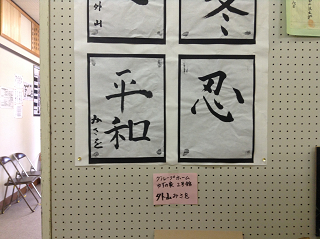 外山
冬
平和
みさを
忍
グループホーム
外山みさを